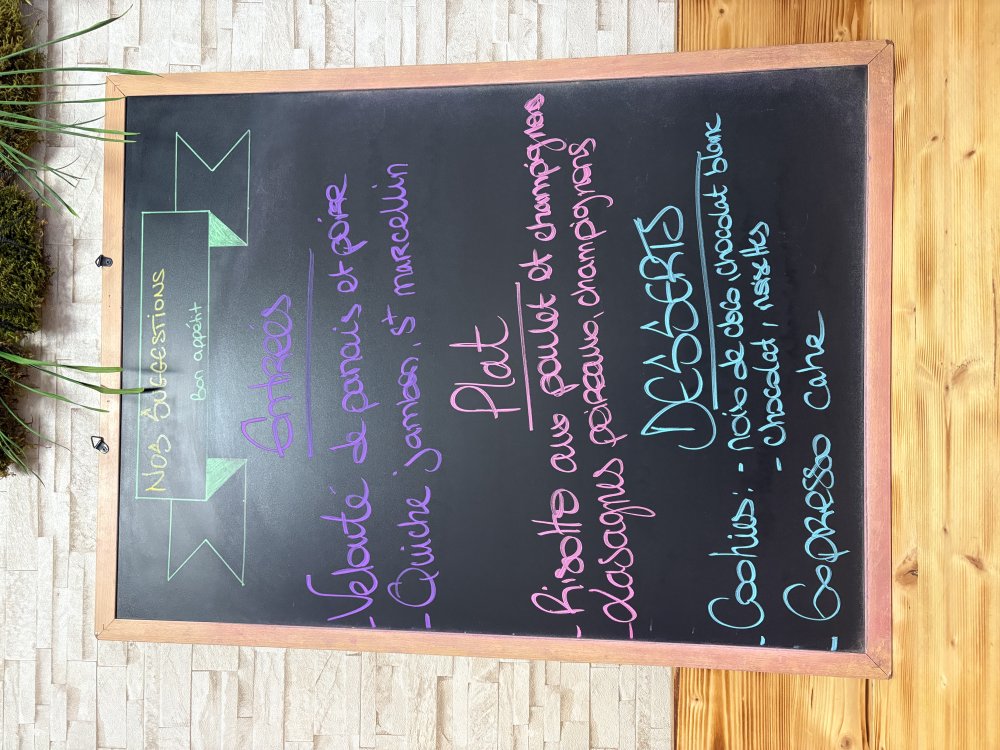 NOS SUGGESTIONS
Bon appétit
Entrées
- Velouté de panais et poire
- Quiche jambon, St marcellin
Plat
- Risotto aux poulet et champignons
- Lasagnes poireaux, champignons
DESSERTS
- Cookies : - noix de coco, chocolat blanc
- chocolat, noisettes
- Expresso cake